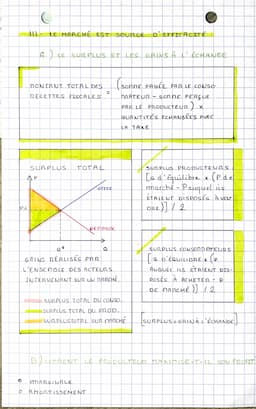 III. LE MARCHÉ EST SOURCE D'EFFICACITÉ
A) LE SURPLUS ET LES GAINS À L'ÉCHANGE
MONTANT TOTAL DES RECETTES FISCALES = (SOMME PAYÉE PAR LE CONSO
MATEUR - SOMME PERÇUE
PAR LE PRODUCTEUR) X
QUANTITÉS ÉCHANGÉES AVEC
LA TAXE
SURPLUS TOTAL
P
OFFRE
P*
DEMANDE
Q*
Q
GAINS RÉALISÉS PAR
L'ENSEMBLE DES ACTEURS
INTERVENANT SUR UN MARCHÉ
SURPLUS TOTAL DU CONSO.
SURPLUS TOTAL DU PROD.
SURPLUS TOTAL SUR MARCHÉ
SURPLUS PRODUCTEURS :
[Q d'équilibre x (P de
marché - P auquel ils
ÉTAIENT DISPOSÉS À VEN
DRE)] / 2
SURPLUS CONSOMMATEURS
[Q D'ÉQUILIBRE x (P
AUQUEL ILS ÉTAIENT DIS-
POSÉS À ACHETER - P
DE MARCHÉ)] / 2
[SURPLUS = GAIN À L'ÉCHANGE]
B) COMMENT LE PRODUCTEUR MAXIMISE-T-IL SON PROFIT
MARGINALE
AMORTISSEMENT